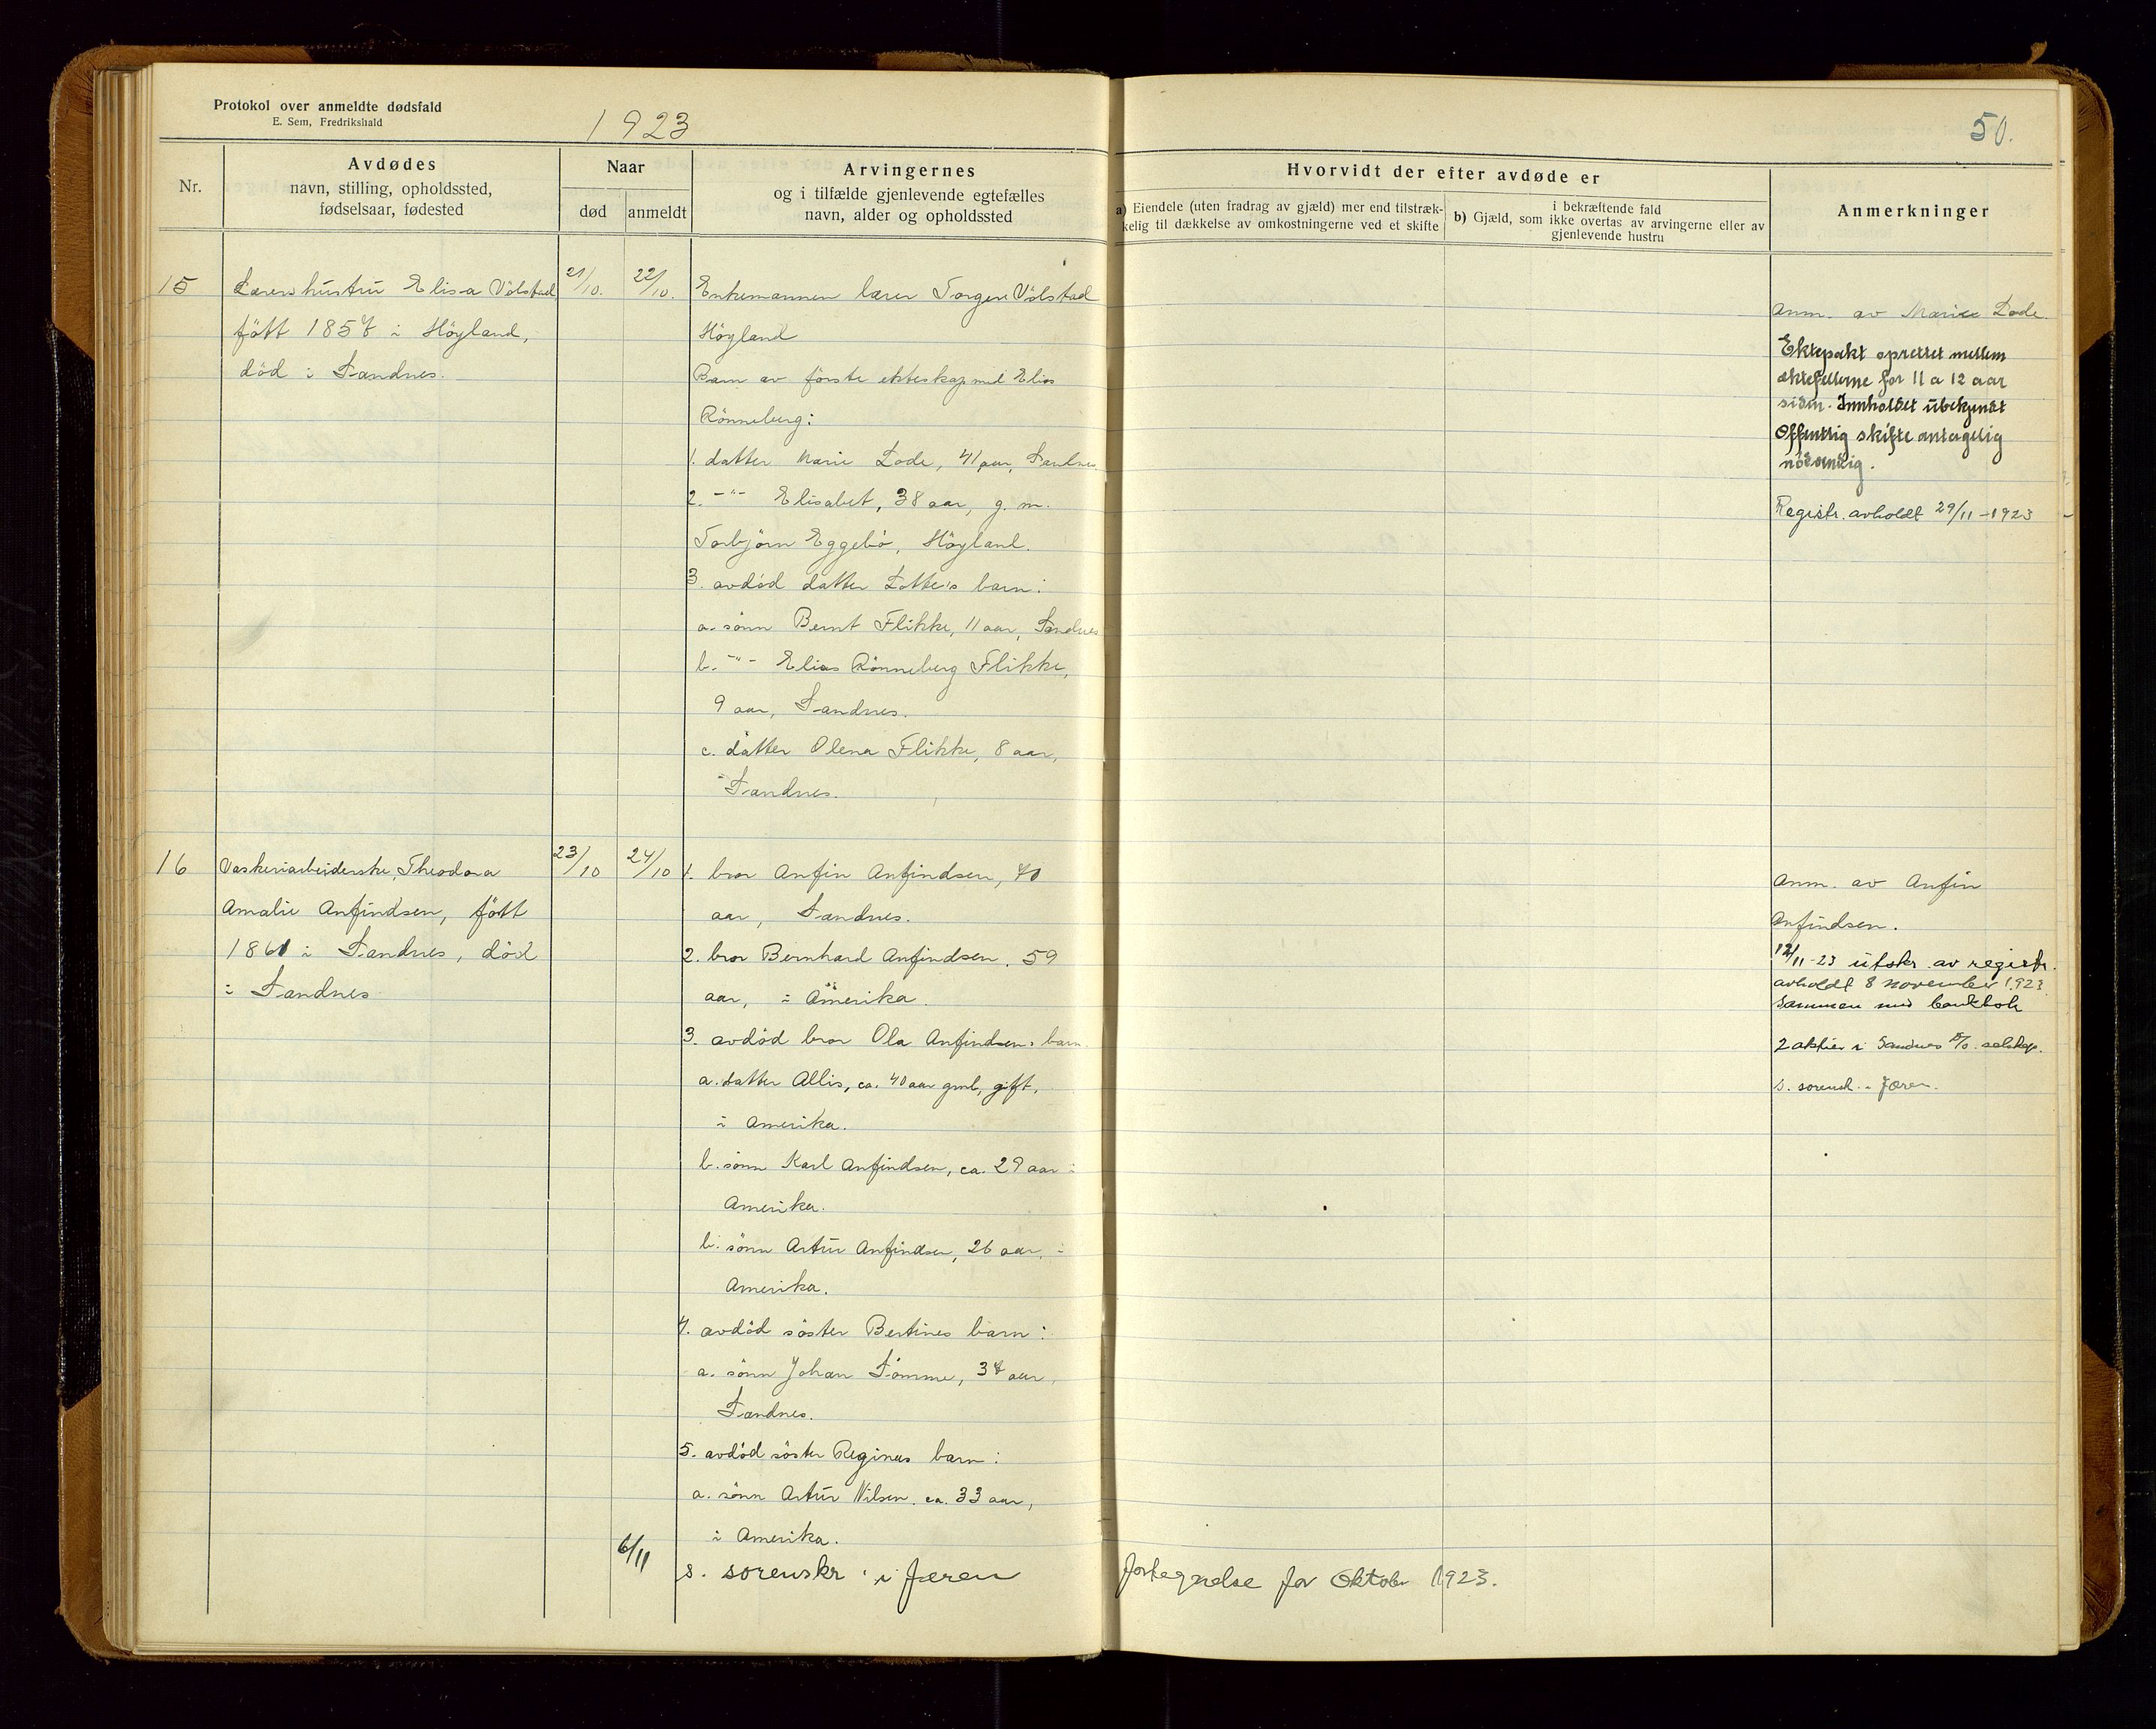 Protokol over anmeldte dødsfald
E. Sem, Fredrikshald
1923
50.
Nr.
Avdødes
navn, stilling, opholdssted,
fødselsaar, fødested
Naar
død
anmeldt
Arvingernes
og i tilfælde gjenlevende egtefælles
navn, alder og opholdssted
Hvorvidt der efter avdøde er
a) Eiendele (uten fradrag av gjæld) mer end tilstræk-
kelig til dækkelse av omkostningerne ved et skifte
i bekræftende fald
b) Gjæld, som ikke overtas av arvingerne eller av
gjenlevende hustru
Anmerkninger
15
Lærerhustru Elisa Völstad
fött 1857 i Höyland,
död i Sandnes.
21/10.
22/10.
Enkemannen lærer Torger Völstad
Höyland
Barn av förste ekteskap med Elias
Rönneberg:
1. datter Marie Lode, 41 aar, Sandnes
2. -"- Elisabet, 38 aar, g. m.
Torbjörn Eggebö, Höyland.
3. avdöd datter Lotte's barn:
a. sönn Bernt Flikke, 11 aar, Sandnes
b. -"- Elias Rönneberg Flikke,
9 aar, Sandnes.
c. datter Olena Flikke, 8 aar,
Sandnes.
Anm. av Marie Lode.
Ektepakt oprettet mellem
ektefellerne for 11 a 12 aar
siden. Innholdet ubekjendt
Offentlig skifte antagelig
nödvendig.
Registr. avholdt 29/11-1923
16
Vaskeriarbeiderske Theodora
Amalie Anfindsen, fött
1861 i Sandnes, död
i Sandnes
23/10
24/10
1. bror Anfin Anfindsen, 70
aar, Sandnes.
2. bror Bernhard Anfindsen, 59
aar, i Amerika.
3. avdöd bror Ola Anfindsens barn
a. datter Allis, ca. 40 aar gml, gift,
i Amerika.
b. sönn Karl Anfindsen, ca. 29 aar i
Amerika.
b. sönn Artur Anfindsen, 26 aar, i
Amerika.
4. avdöd söster Bertines barn:
a. sönn Johan Sömme, 37 aar,
Sandnes.
5. avdöd söster Reginas barn:
a. sönn Artur Nilsen, ca. 33 aar,
i Amerika.
Anm. av Anfin
Anfindsen.
12/11-23 utskr. av registr.
avholdt 8 november 1923
sammen med bankbok
2 aktier i Sandnes selskap.
s. sorensk. i Jæren.
6/11
s. sorenskr i Jæren
fortegnelse for Oktober 1923.